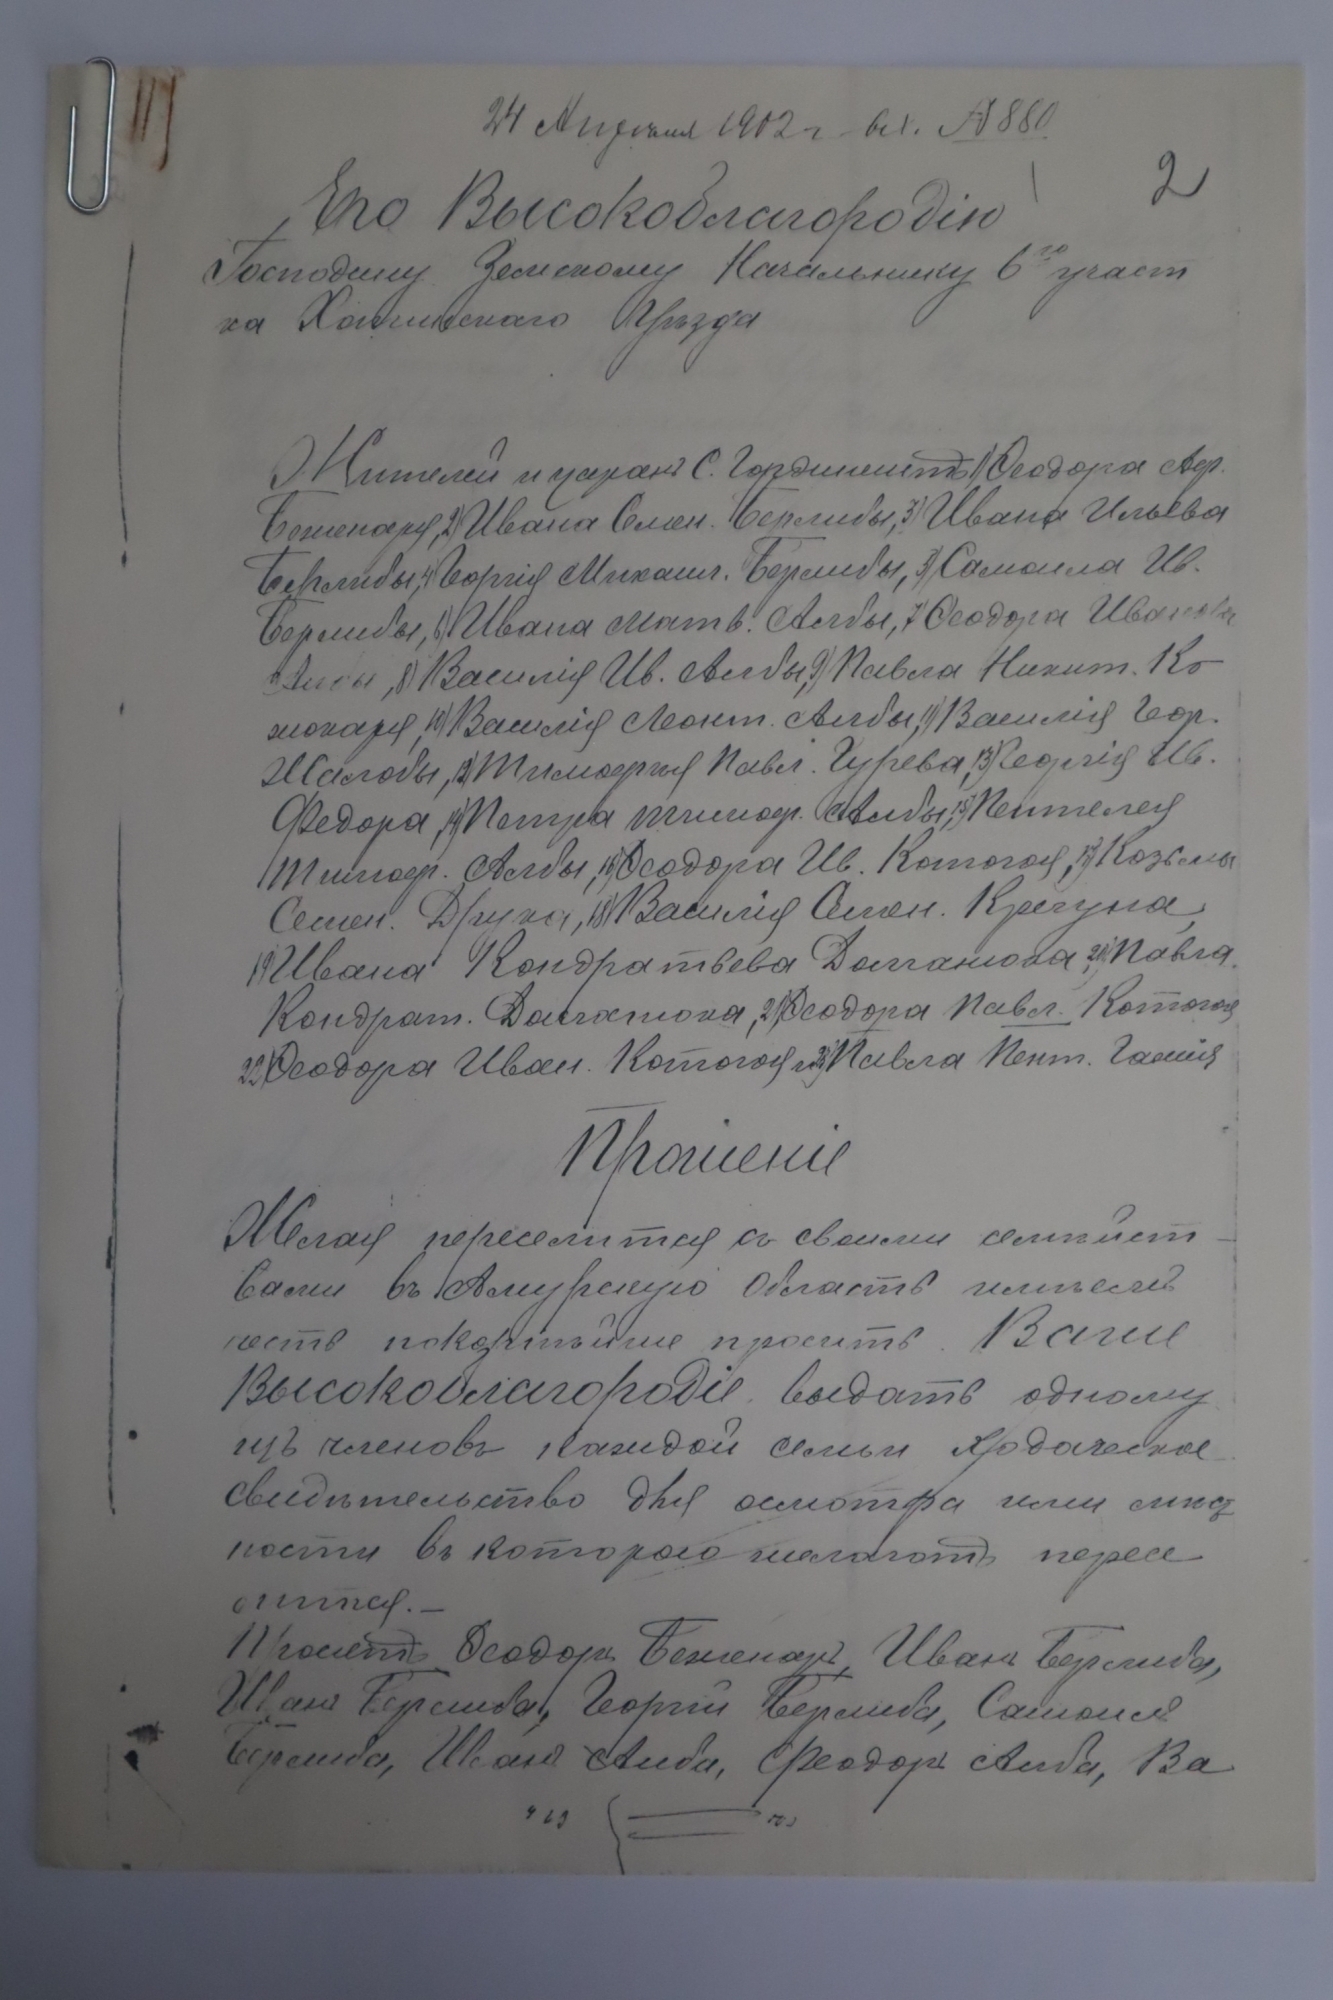 24 Апреля 1902 г вх. №880
2
Его Высокоблагородію
Господину Земскому Начальнику 6го участ
ка Хотинскаго Уѣзда
Жителей и царанъ С. Гординештъ 1) Ѳеодора Аѳ.
Беженаря, 2) Ивана Семен. Берлибы, 3) Ивана Ильева
Берлибы, 4) Георгія Михаил. Берлибы, 5) Самоила Ив.
Берлибы, 6) Ивана Матв. Албы, 7) Ѳеодора Иванова
Албы, 8) Василія Ив. Албы, 9) Павла Никит. Ко
жокаря, 10) Василія Леонт. Албы, 11) Василія Геор.
Шалобы, 12) Тимофтія Павл. Гурева, 13) Георгія Ив.
Федора, 14) Петра Тимоф. Албы, 15) Пентелея
Тимоф. Албы, 16) Ѳеодора Ив. Котогоя, 17) Козьмы
Семен. Друка, 18) Василія Семен. Кречуна,
19) Ивана Кондратьева Долганюка, 20) Павла
Кондрат. Долганюка, 21) Ѳеодора Павл. Котогоя
22) Ѳеодора Иван. Котогоя и 23) Павла Пент.
Прошеніе
Желая переселится съ своими семѣйст
вами въ Амурскую Область имѣемъ
честь покорнѣйше просить Ваше
Высокоблагородіе выдать одному
изъ членовъ каждой семьи ходаческое
свидѣтельство для осмотра ими мѣст
ности въ которою желаютъ пересе
лится. —
Просятъ Ѳеодоръ Беженаръ, Иванъ Берлиба,
Иванъ Берлиба, Георгій Берлиба, Самоилъ
Берлиба, Иванъ Алба, Феодоръ Алба, Ва